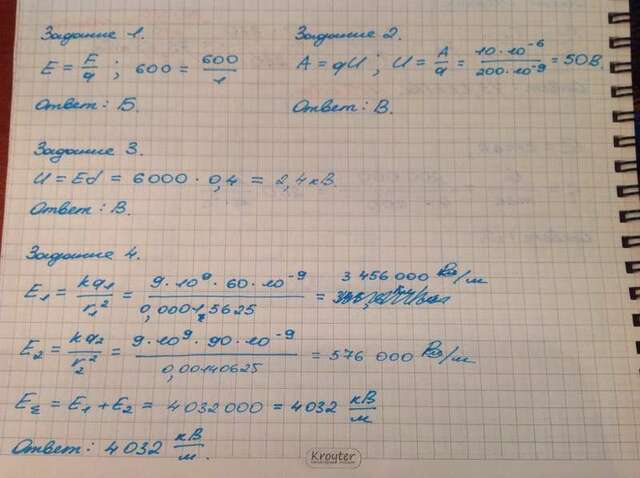 Задание 1.
E = F/q ; 600 = 600/1
Ответ: Б.
Задание 2.
A = qU ; U = A/q = 10·10⁻⁶/200·10⁻⁹ = 50 В.
Ответ: В.
Задание 3.
U = Ed = 6000 · 0,4 = 2,4 кВ.
Ответ: В.
Задание 4.
E₁ = kq₁/r₁² = 9·10⁹·60·10⁻⁹/0,00015625 = 3 456 000 В/м
E₂ = kq₂/r₂² = 9·10⁹·90·10⁻⁹/0,00140625 = 576 000 В/м
E_Σ = E₁ + E₂ = 4032000 = 4032 кВ/м
Ответ: 4032 кВ/м.
Kroyter